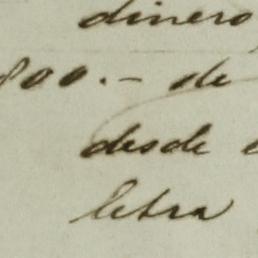 dinero
800.- de
desde
letra